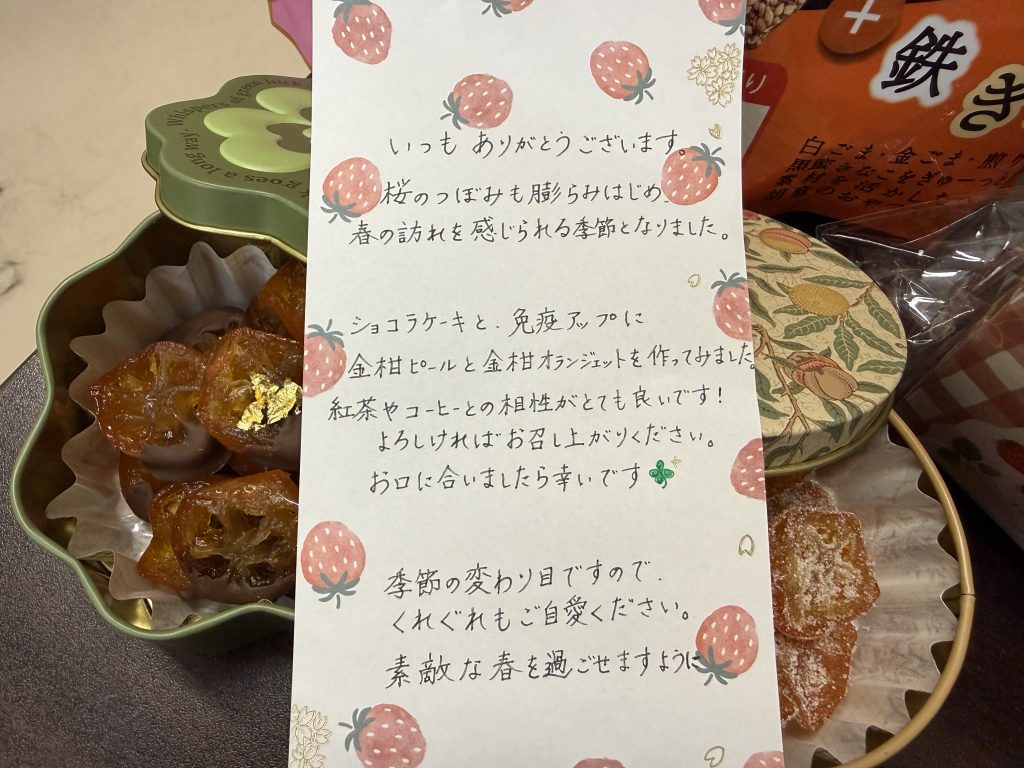 いつも ありがとうございます。
桜のつぼみも膨らみはじめ、
春の訪れを感じられる季節となりました。
ショコラケーキと、免疫アップに
金柑ピールと金柑オランジェットを作ってみました
紅茶やコーヒーとの相性がとても良いです！
よろしければお召し上がりください。
お口に合いましたら幸いです
季節の変わり目ですので、
くれぐれもご自愛ください。
素敵な春を過ごせますように
Whispers of green luck
goes a long way.
+
鉄
き
り
白ごま・金ごま・煎り